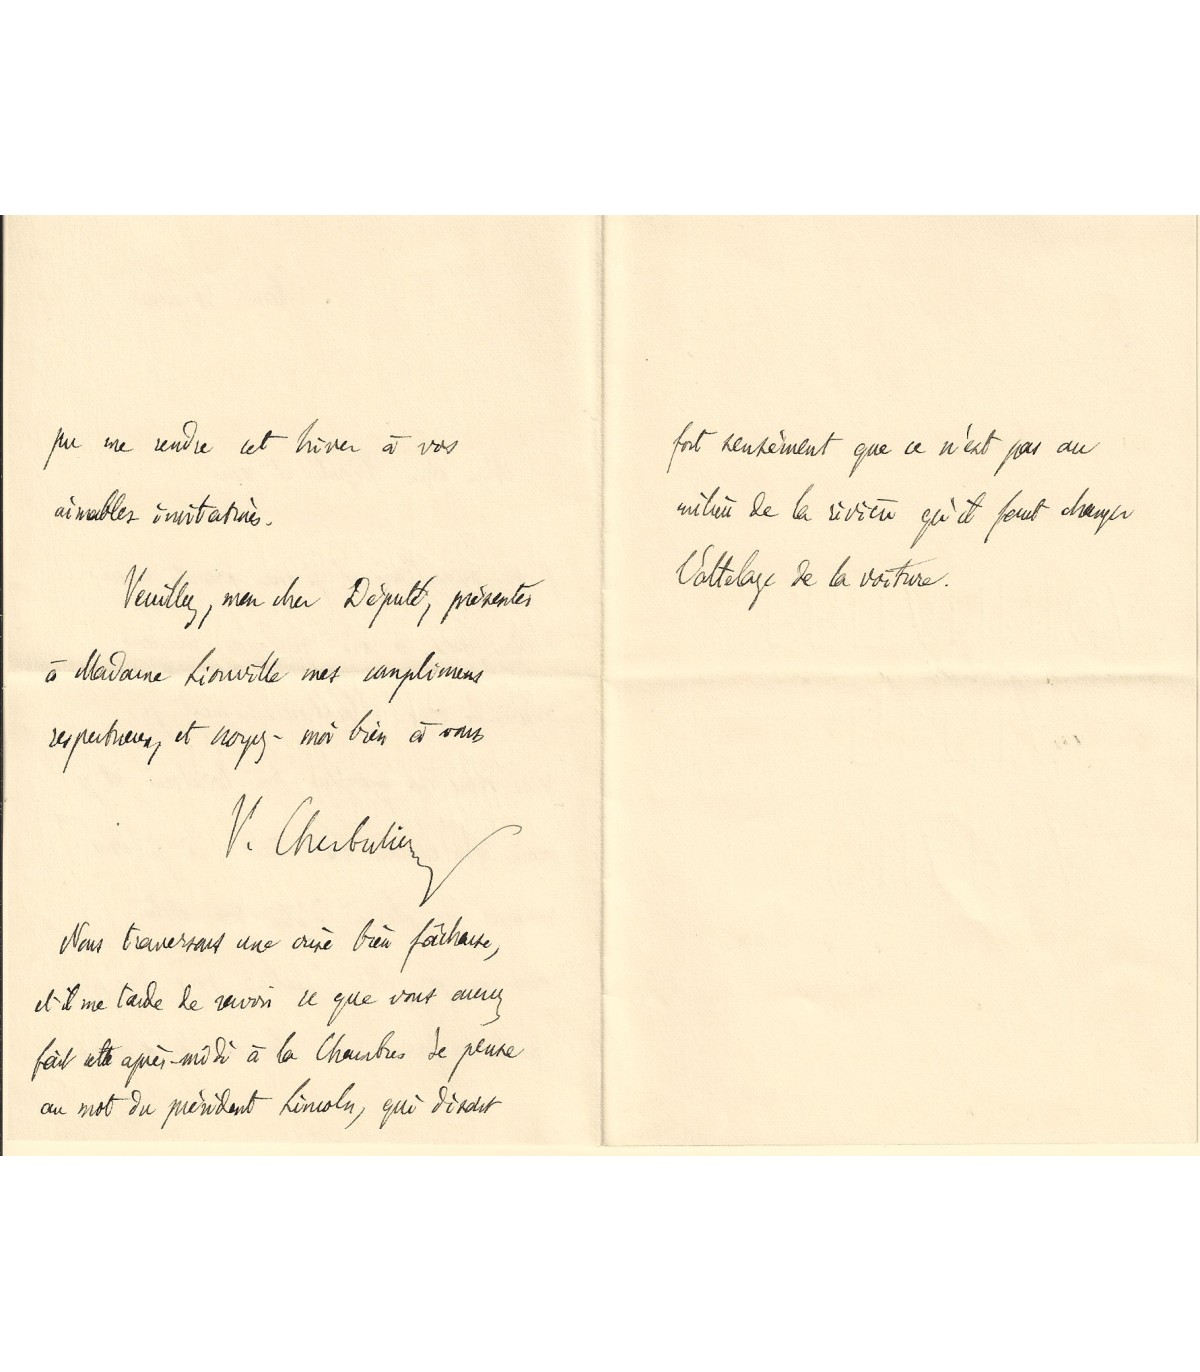 pu me rendre cet hiver à vos
aimables invitations.
Veuillez, mon cher Député, présenter
à Madame Liouville mes complimens
respectueux, et croyez-moi bien à vous
V. Cherbuliez
Nous traversons une crise bien fâcheuse,
et il me tarde de savoir ce que vous aurez
fait cette après-midi à la Chambre. Je pense
au mot du président Lincoln, qui disait
fort sensément que ce n'est pas au
milieu de la rivière qu'il faut changer
l'attelage de la voiture.